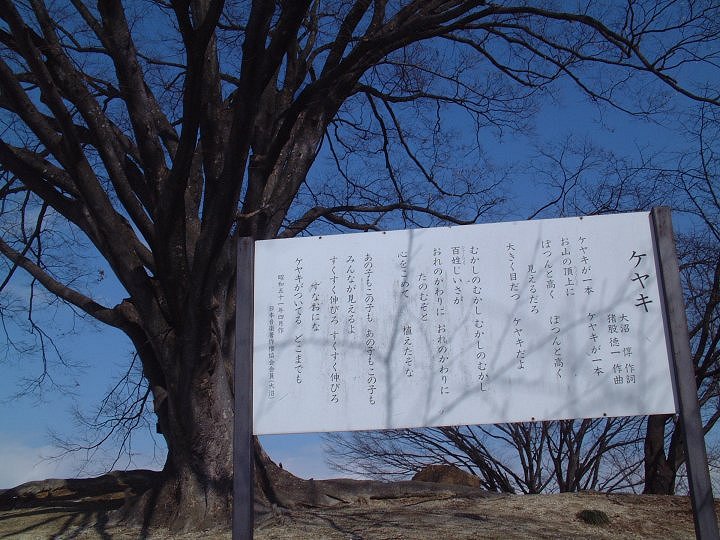 ケヤキ
大沼 惇 作詞
猪股 徳一 作曲
ケヤキが一本 ケヤキが一本
お山の頂上に
ぽつんと高く ぽつんと高く
見えるだろ
大きく目だつ ケヤキだよ
むかしのむかし むかしのむかし
百姓じいさが
おれのかわりに おれのかわりに
たのむぞと
心をこめて 植えたそな
あの子もこの子も あの子もこの子も
みんなが見えるよ
すくすく伸びろ すくすく伸びろ
すなおにな
ケヤキがついてる どこまでも
昭和五十一年四月作
日本音楽著作権協会会員(大沼)